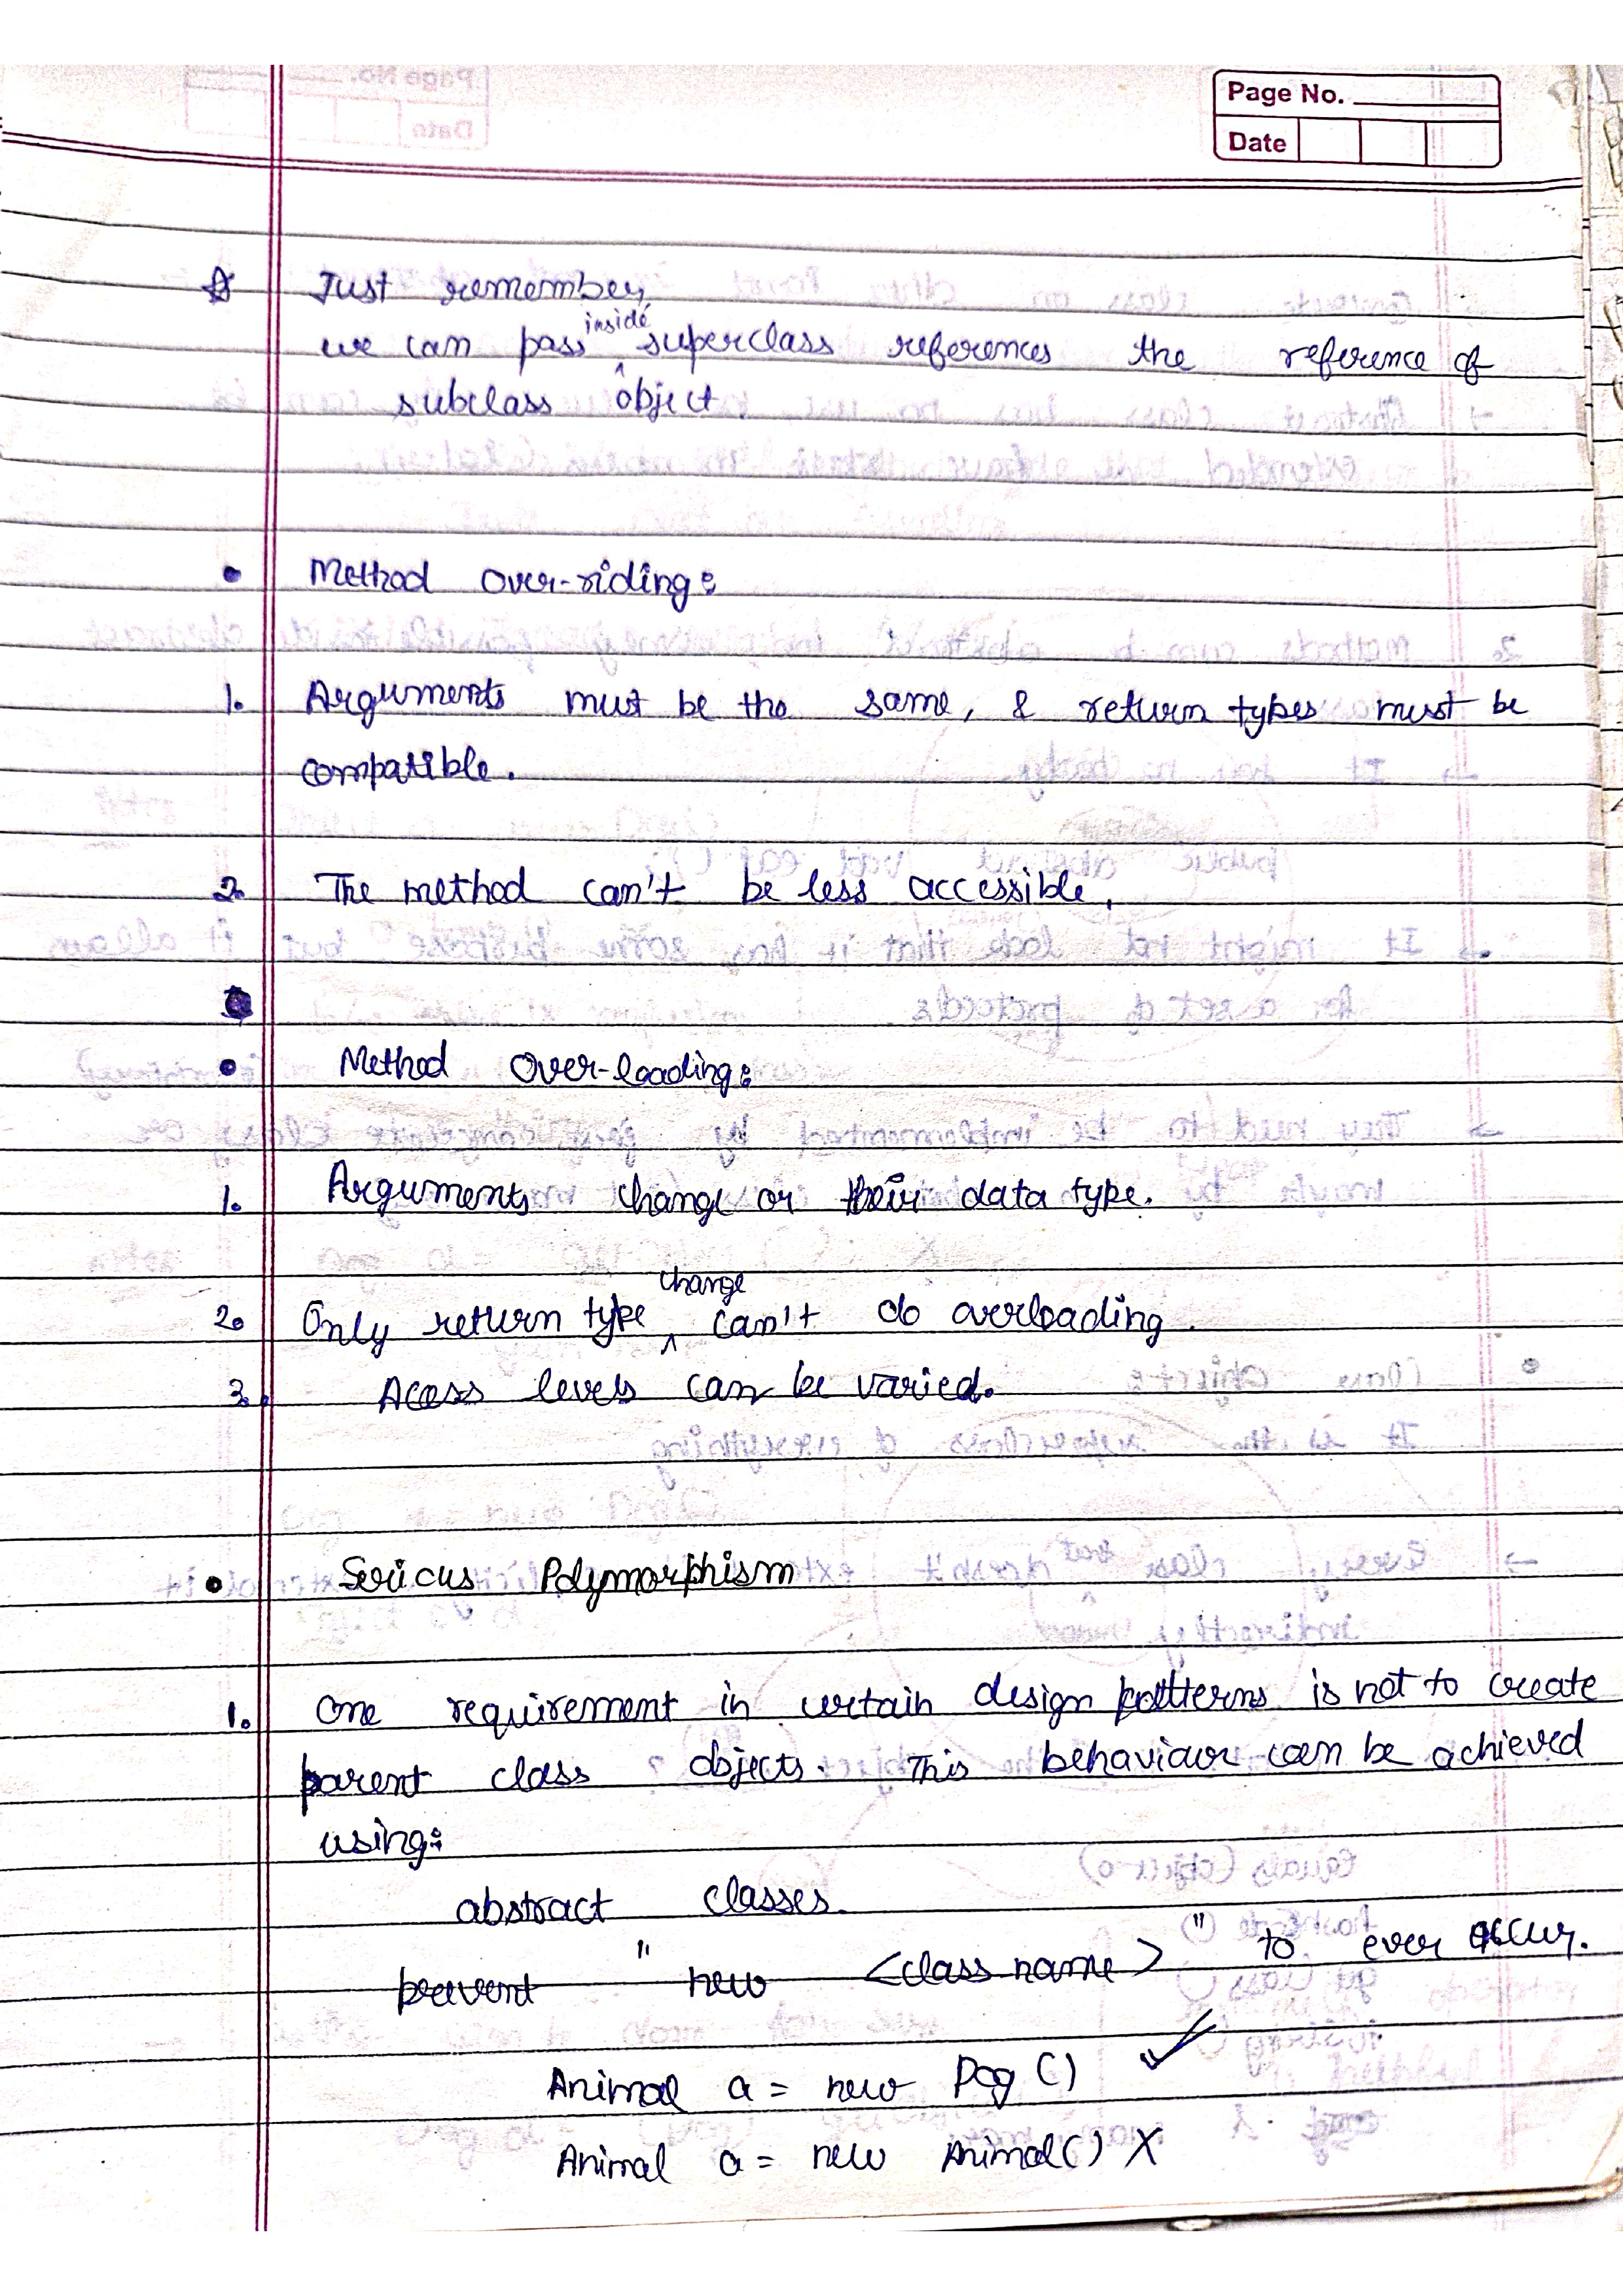 Page No.
Date
Just remember,
we can pass inside superclass references the reference of
subclass object.
• Method over-riding:
1. Arguments must be the same, & return types must be
compatible.
2. The method can't be less accessible.
• Method Over-loading:
1. Arguments change or their data type.
2. Only return type change can't do overloading.
3. Acess levels can be varied.
• Serious Polymorphism
1. One requirement in certain design patterns is not to create
parent class objects. This behaviour can be achieved
using:
abstract classes.
prevent "new <class name>" to ever occur.
Animal a = new Dog () ✓
Animal a = new Animal() X